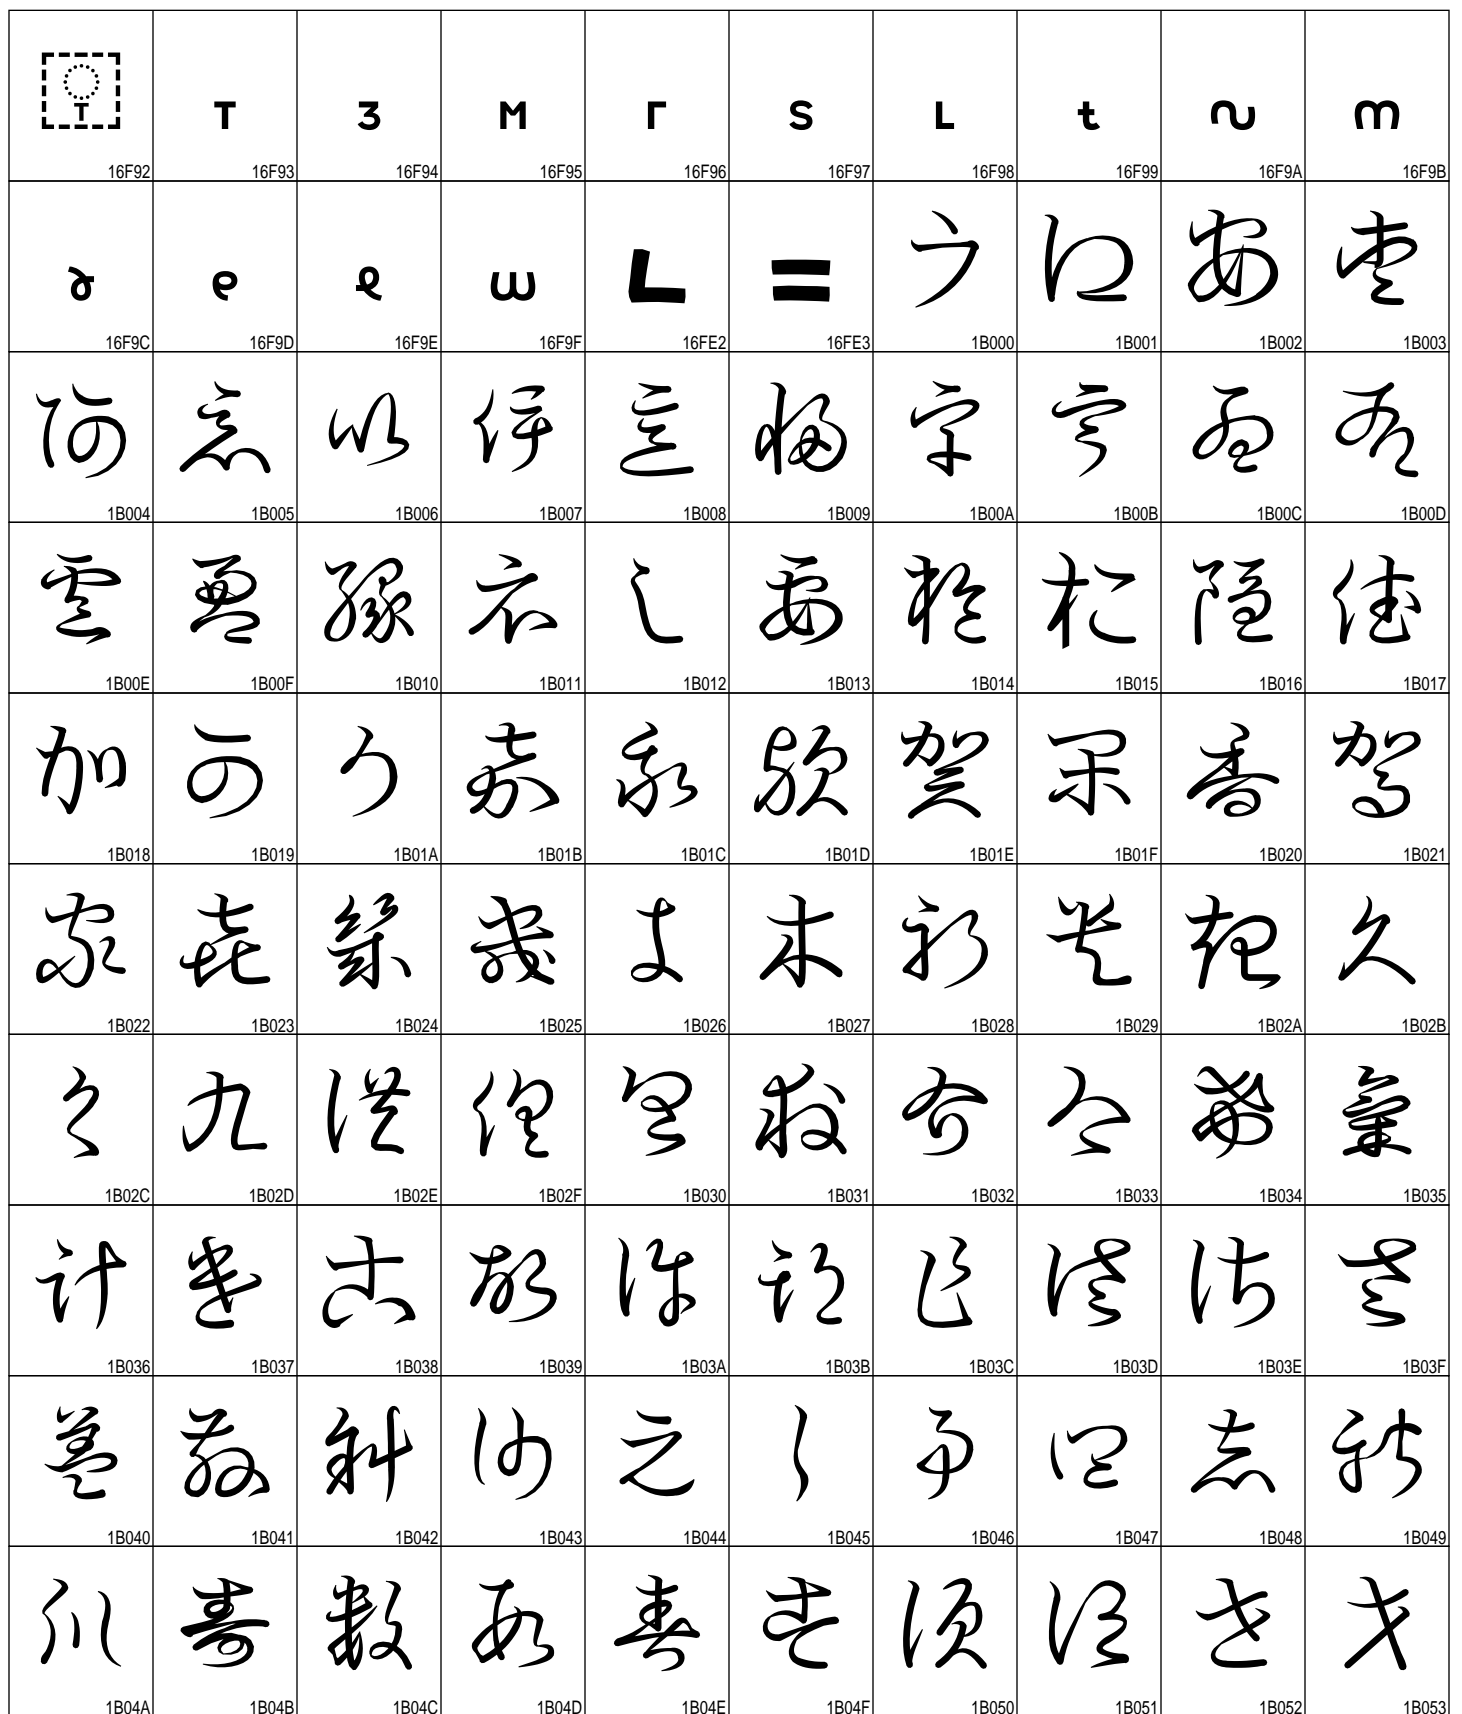 𖾓 𖾔 𖾕 𖾖 𖾗 𖾘 𖾙 𖾚 𖾛
16F92 16F93 16F94 16F95 16F96 16F97 16F98 16F99 16F9A 16F9B
𖾜 𖾝 𖾞 𖾟 𖿢 𖿣 𛀀 𛀁 𛀂 𛀃
16F9C 16F9D 16F9E 16F9F 16FE2 16FE3 1B000 1B001 1B002 1B003
𛀄 𛀅 𛀆 𛀇 𛀈 𛀉 𛀊 𛀋 𛀌 𛀍
1B004 1B005 1B006 1B007 1B008 1B009 1B00A 1B00B 1B00C 1B00D
𛀎 𛀏 𛀐 𛀑 𛀒 𛀓 𛀔 𛀕 𛀖 𛀗
1B00E 1B00F 1B010 1B011 1B012 1B013 1B014 1B015 1B016 1B017
𛀘 𛀙 𛀚 𛀛 𛀜 𛀝 𛀞 𛀟 𛀠 𛀡
1B018 1B019 1B01A 1B01B 1B01C 1B01D 1B01E 1B01F 1B020 1B021
𛀢 𛀣 𛀤 𛀥 𛀦 𛀧 𛀨 𛀩 𛀪 𛀫
1B022 1B023 1B024 1B025 1B026 1B027 1B028 1B029 1B02A 1B02B
𛀬 𛀭 𛀮 𛀯 𛀰 𛀱 𛀲 𛀳 𛀴 𛀵
1B02C 1B02D 1B02E 1B02F 1B030 1B031 1B032 1B033 1B034 1B035
𛀶 𛀷 𛀸 𛀹 𛀺 𛀻 𛀼 𛀽 𛀾 𛀿
1B036 1B037 1B038 1B039 1B03A 1B03B 1B03C 1B03D 1B03E 1B03F
𛁀 𛁁 𛁂 𛁃 𛁄 𛁅 𛁆 𛁇 𛁈 𛁉
1B040 1B041 1B042 1B043 1B044 1B045 1B046 1B047 1B048 1B049
𛁊 𛁋 𛁌 𛁍 𛁎 𛁏 𛁐 𛁑 𛁒 𛁓
1B04A 1B04B 1B04C 1B04D 1B04E 1B04F 1B050 1B051 1B052 1B053